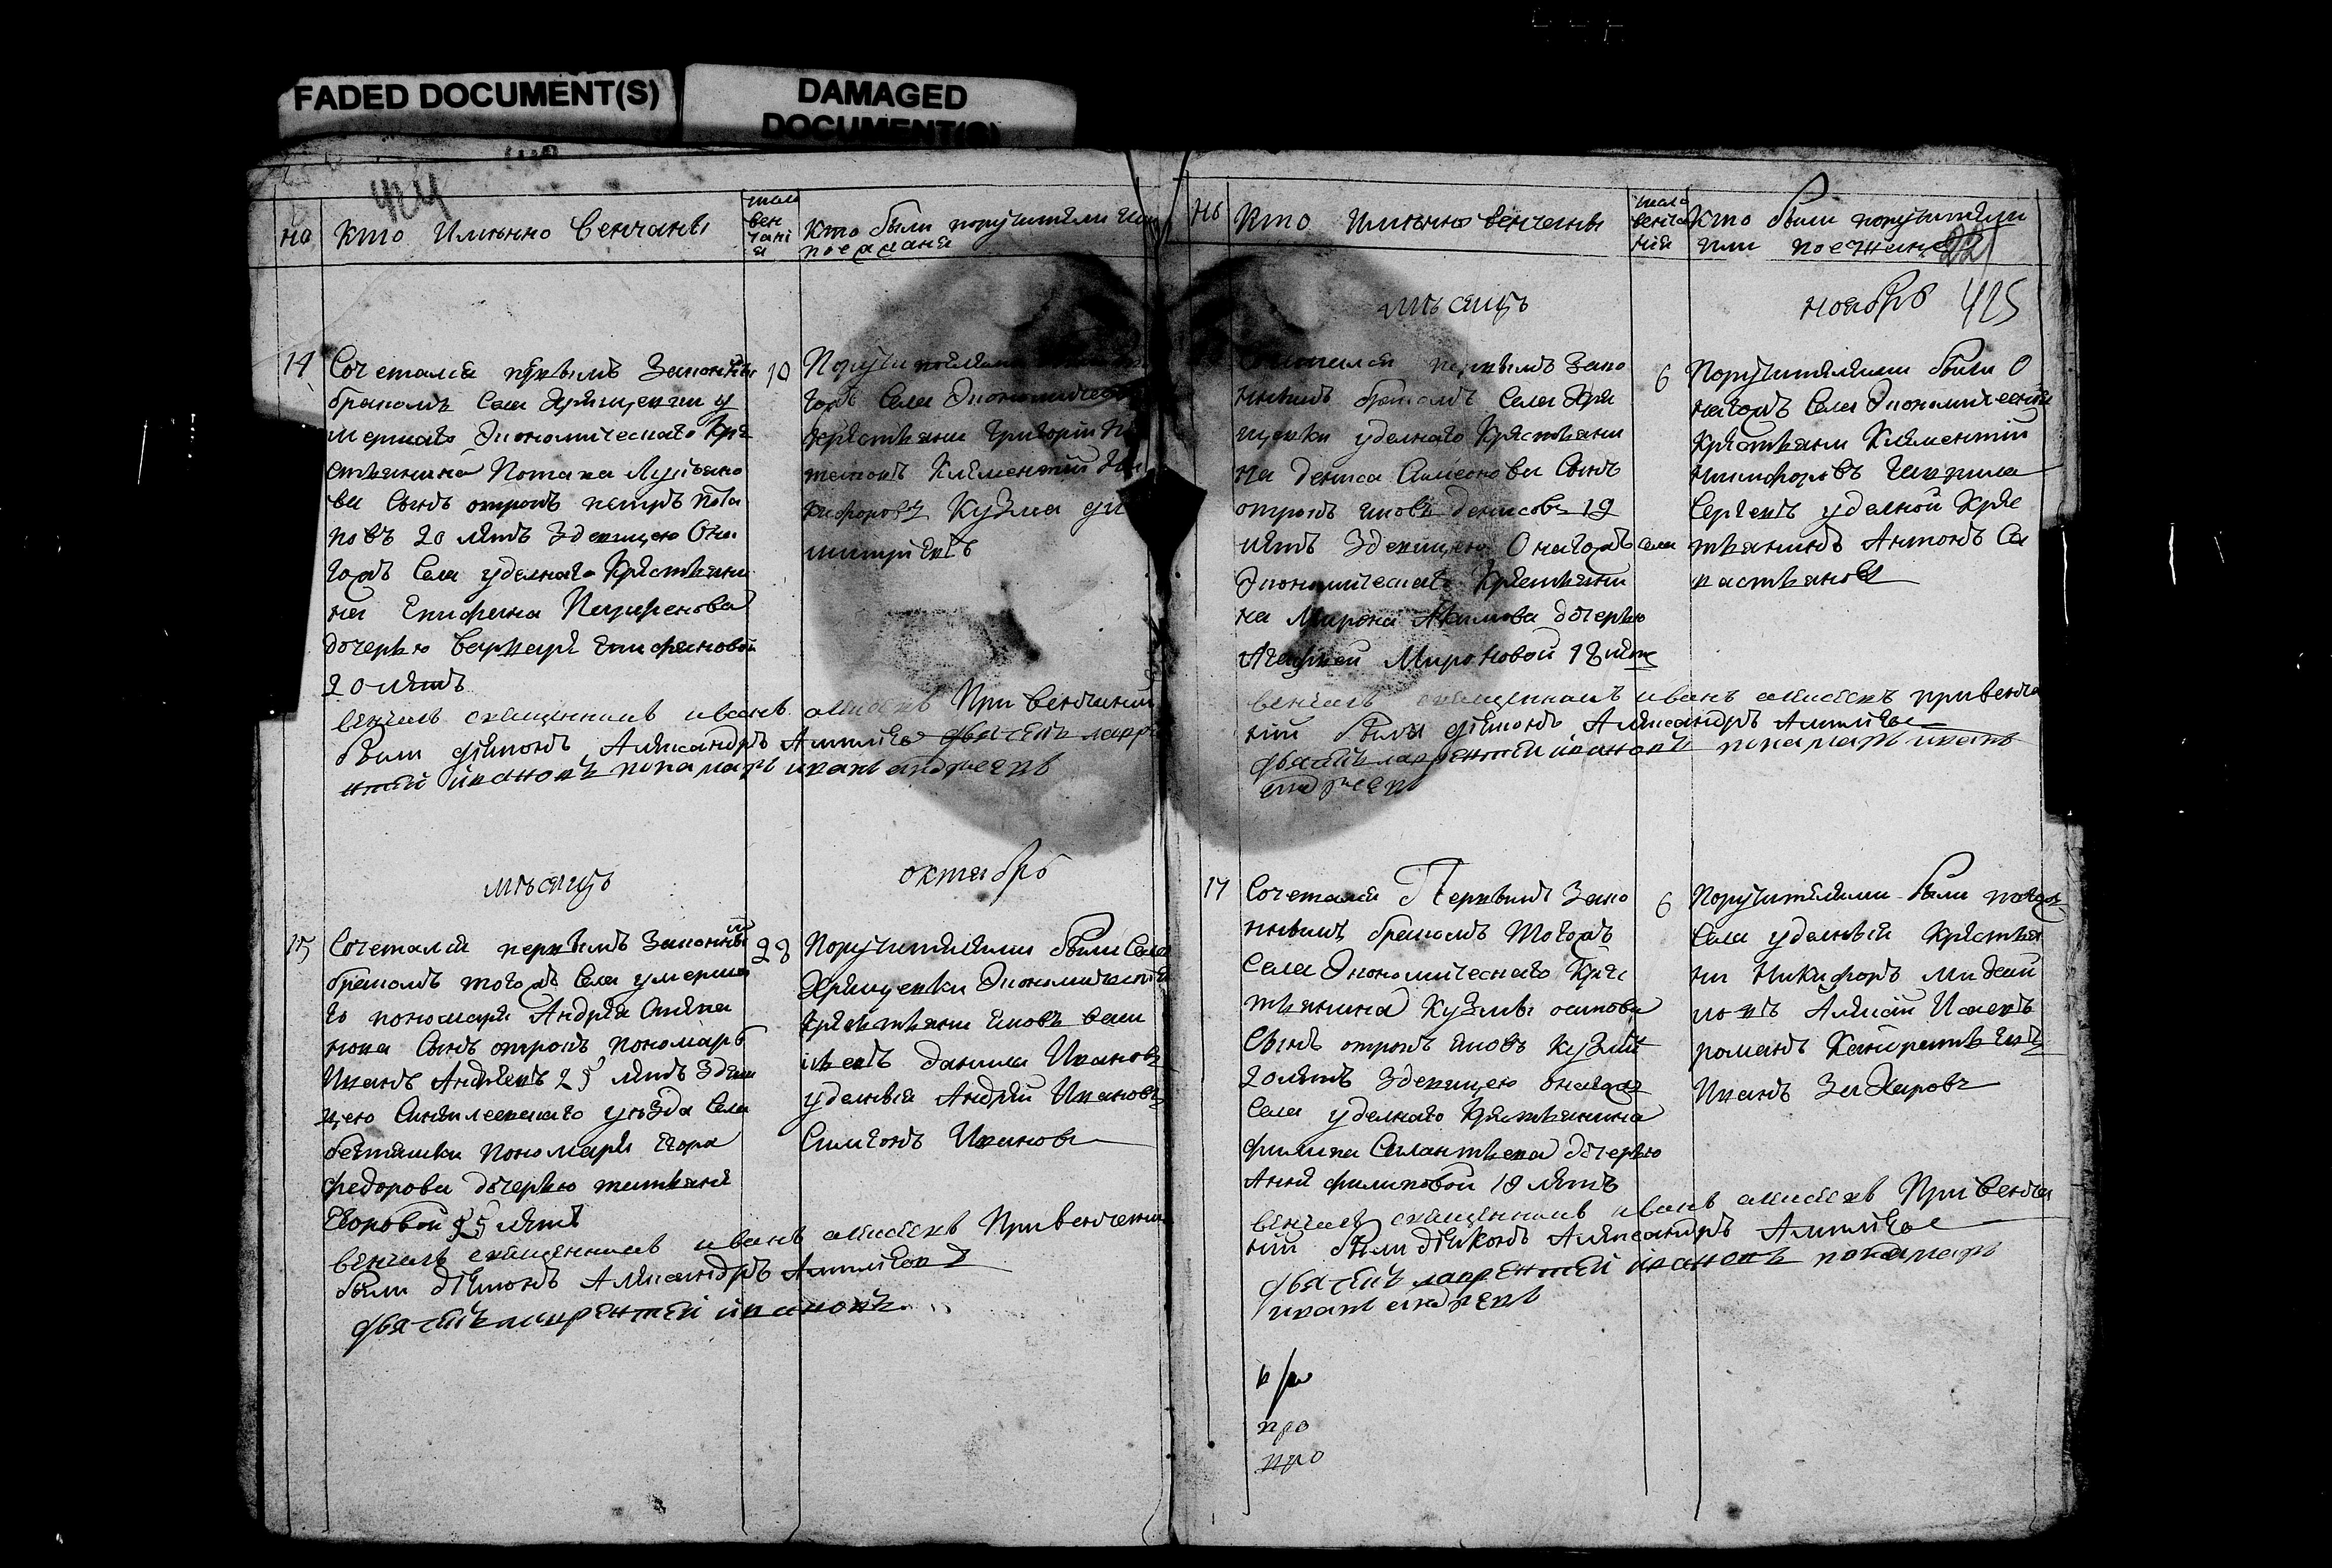 FADED DOCUMENT(S)
DAMAGED
DOCUMENT(S)
424
Но
Кто Имянно Венчаны
вен
чанi
я
Кто были поручители или
поезжаня
14
Сочетался первымъ Законны
бракомъ Села Хрящевки у
мершаго Экономическаго Кре
стьянина Потапа Лукьяно
ва Сынъ отрокъ петръ Пота
повъ 20 летъ Здевицею Она
гожъ Села уделнаго Крестьяни
на Епифана Парфенова
дочерью Варварй Епифановой
20 летъ
10
Села Экономическ
крестьяни Григорий
Климентий
кифоровъ Кузма
митриевъ
венчалъ священникъ иванъ алексеевъ При венчании
были дияконъ Александръ
иванъ андреевъ
мѣсяцъ
октябрь
15
Сочетался первымъ Законны
бракомъ тогожъ Села умерша
го пономаря Андрея
Сынъ отрокъ пономарь
Иванъ Андреевъ 25 летъ Здеви
цею уѣзда Села
пономаря Егора
федорова дочерью татьяной
Егоровой 25 летъ
28
Поручителями были Села
Хрящевки Экономически
крестьяни Яковъ Васи
льевъ данила Ивановъ
уделныя Андрей Ивановъ
Симеонъ Ивановъ
венчалъ священникъ иванъ алексеевъ При венчании
были дияконъ Александръ
ивановъ
Но
Кто Имянно венчаны
венча
ния
Кто были поручители
или поезжаня
22
мѣсяцъ
ноябрь 425
первымъ Зако
ннымъ бракомъ Села Хря
щевки уделнаго Крестьяни
на дениса Симеонова Сынъ
отрокъ яковъ денисовъ 19
летъ Здевицею Онагожъ Села
Экономическаго Крестьяни
на Мирона Акимова дочерью
Агафьей Мироновой 18 летъ
6
Поручителями были О
нагожъ Села Экономический
Крестьяни Климентий
никифоровъ
Сергеевъ уделной Кре
стьянинъ Антонъ Се
вастьяновъ
венчалъ священникъ иванъ алексеевъ при венча
нии были дияконъ Александръ
ивановъ понамарь иванъ
андреевъ
17
Сочетался Первымъ Зако
ннымъ бракомъ тогожъ
Села Экономическаго Крес
тьянина Кузмы осипова
Сынъ отрокъ яковъ Кузмин
20 летъ Здевицею онагожъ
Села уделнаго Крестьянина
филипа Силантьева дочерью
Анной филиповой 18 летъ
6
Поручителями были тогож
Села уделныя Крестья
ни Никифоръ
Алексей Исаевъ
романъ Кондратьевъ
Иванъ Захаровъ
венчалъ священникъ иванъ алексеевъ При венча
нии были дияконъ Александръ
ивановъ понамарь
иванъ андреевъ
про
про